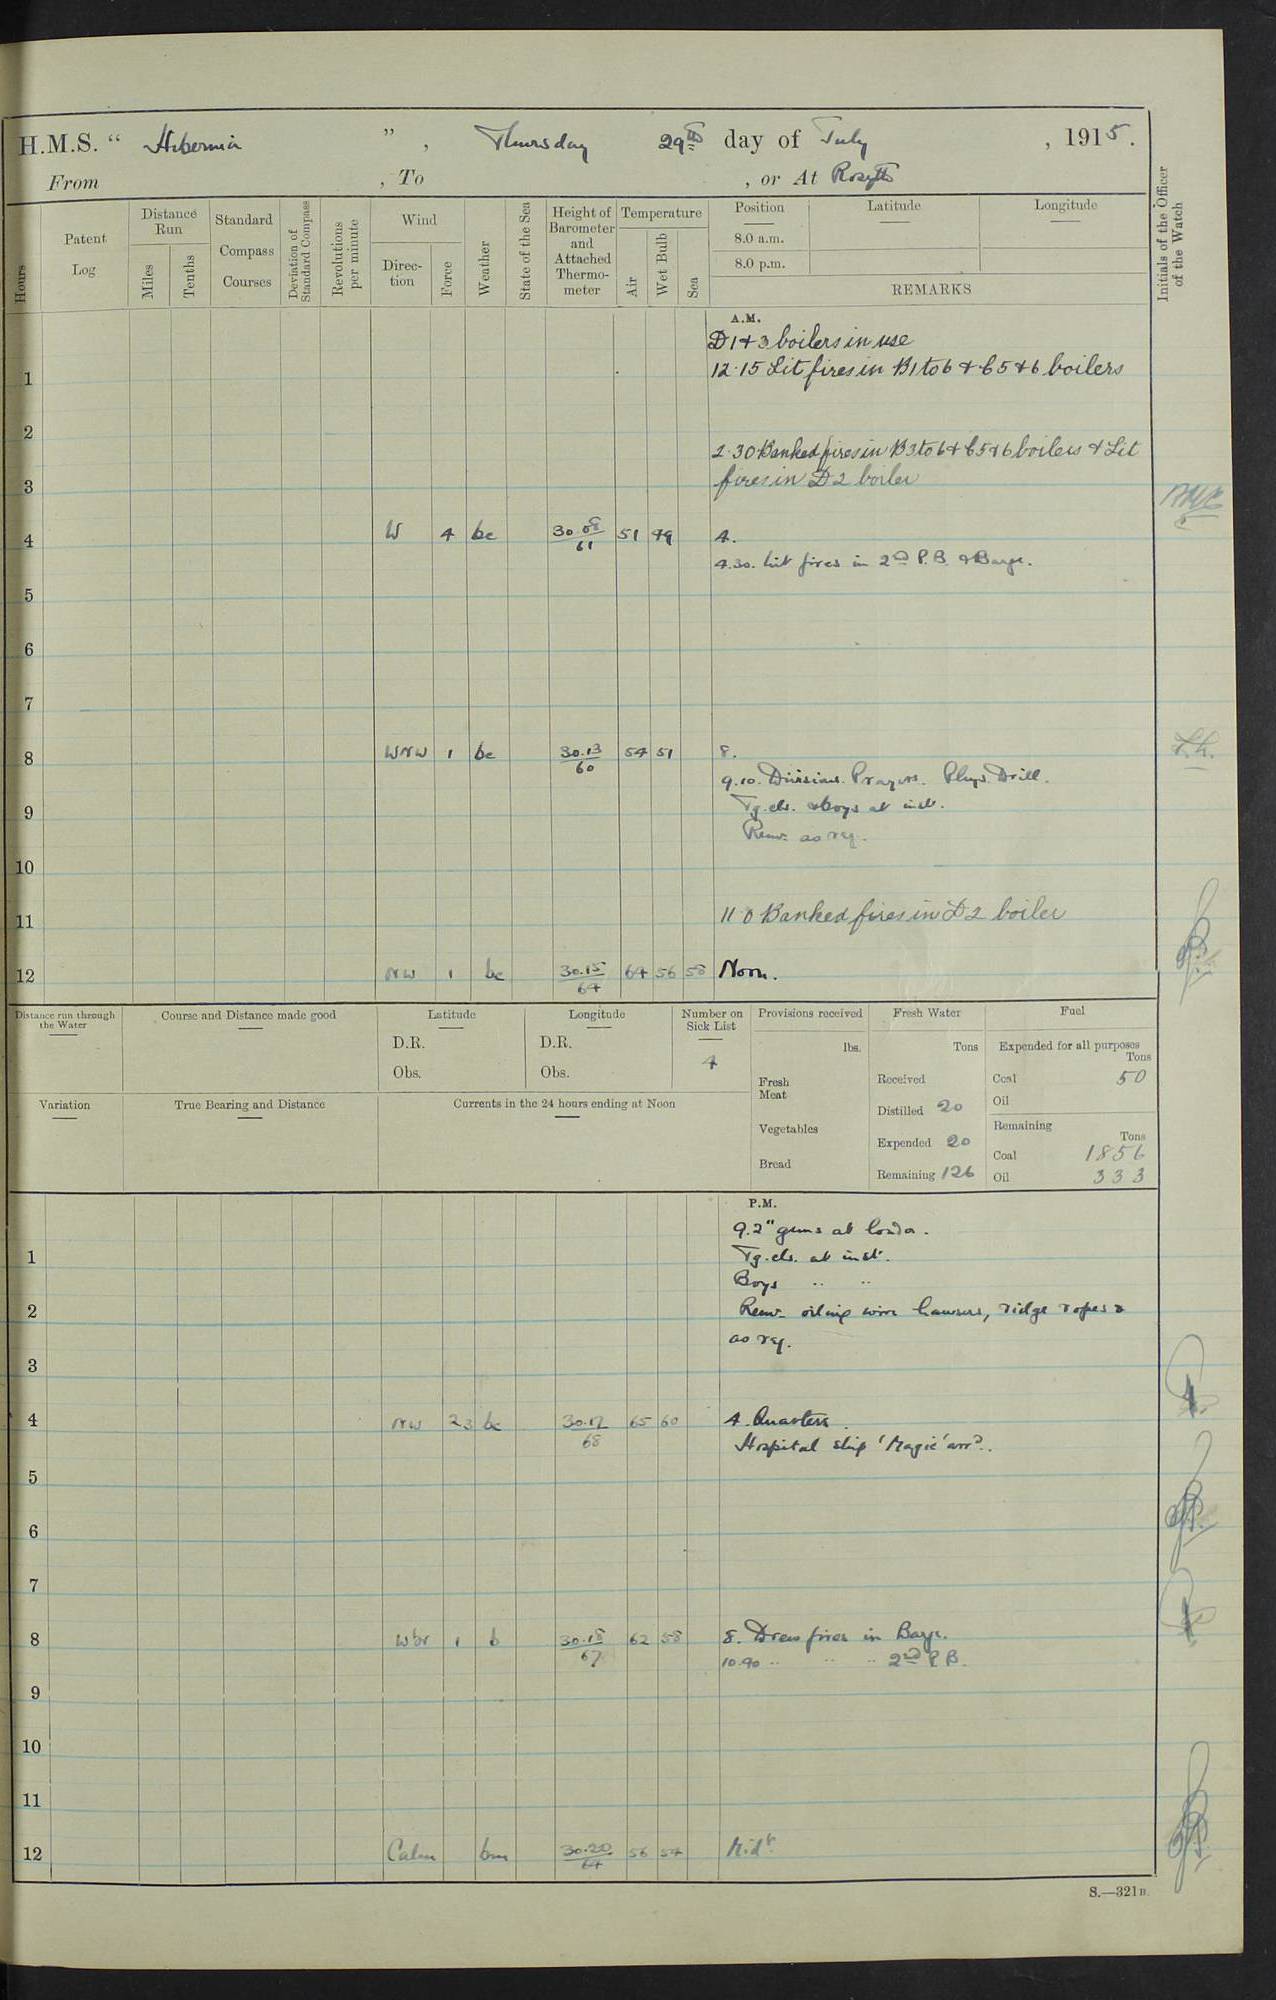 H.M.S. “ Hibernia ”, Thursday 29th day of July, 1915.
From , To , or At Rosyth
Hours
Patent Log
Distance Run
Miles
Tenths
Standard Compass Courses
Deviation of Standard Compass
Revolutions per minute
Wind
Direction
Force
Weather
State of the Sea
Height of Barometer and Attached Thermometer
Temperature
Air
Wet Bulb
Sea
Position
8.0 a.m.
8.0 p.m.
Latitude
Longitude
REMARKS
Initials of the Officer of the Watch
A.M.
D 1 & 3 boilers in use
1 12.15 Lit fires in B1 to 6 & C 5 & 6 boilers
2
2.30 Banked fires in B3 to 6 & C5 & 6 boilers & Lit
3 fires in D2 boiler
4 W 4 bc 30.08/61 51 49 4.
4.30. Lit fires in 2nd P.B. & Barge.
5
6
7
8 WNW 1 bc 30.13/60 54 51 8.
9.10. Divisions. Prayers. Phys. Drill.
9 Tg. cls. & boys at inst.
Remr. as req.
10
11 11.0 Banked fires in D2 boiler
12 NW 1 bc 30.15/64 64 56 58 Noon.
Distance run through the Water
Course and Distance made good
Latitude
D.R.
Obs.
Longitude
D.R.
Obs.
Number on Sick List
4
Provisions received
lbs.
Fresh Meat
Vegetables
Bread
Fresh Water
Tons
Received
Distilled 20
Expended 20
Remaining 126
Fuel
Expended for all purposes
Tons
Coal 50
Oil
Remaining
Tons
Coal 1856
Oil 333
Variation
True Bearing and Distance
Currents in the 24 hours ending at Noon
P.M.
9.2" guns at loader.
1 Tg. cls. at inst.
Boys " "
2 Remr. oiling wire hawsers, ridge ropes &
as req.
3
4 NW 23 bc 30.17/68 65 60 4. Quarters.
Hospital ship 'Magic' arrd.
5
6
7
8 WbN 1 b 30.18/67 62 58 8. Drew fires in Barge.
10.40 " " " 2nd P.B.
9
10
11
12 Calm bm 30.20/64 56 54 Midt.
S.—321B.